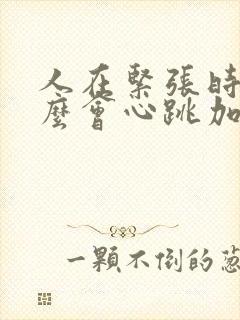 人在緊張時
麼會心跳加
一顆不倒的蔥